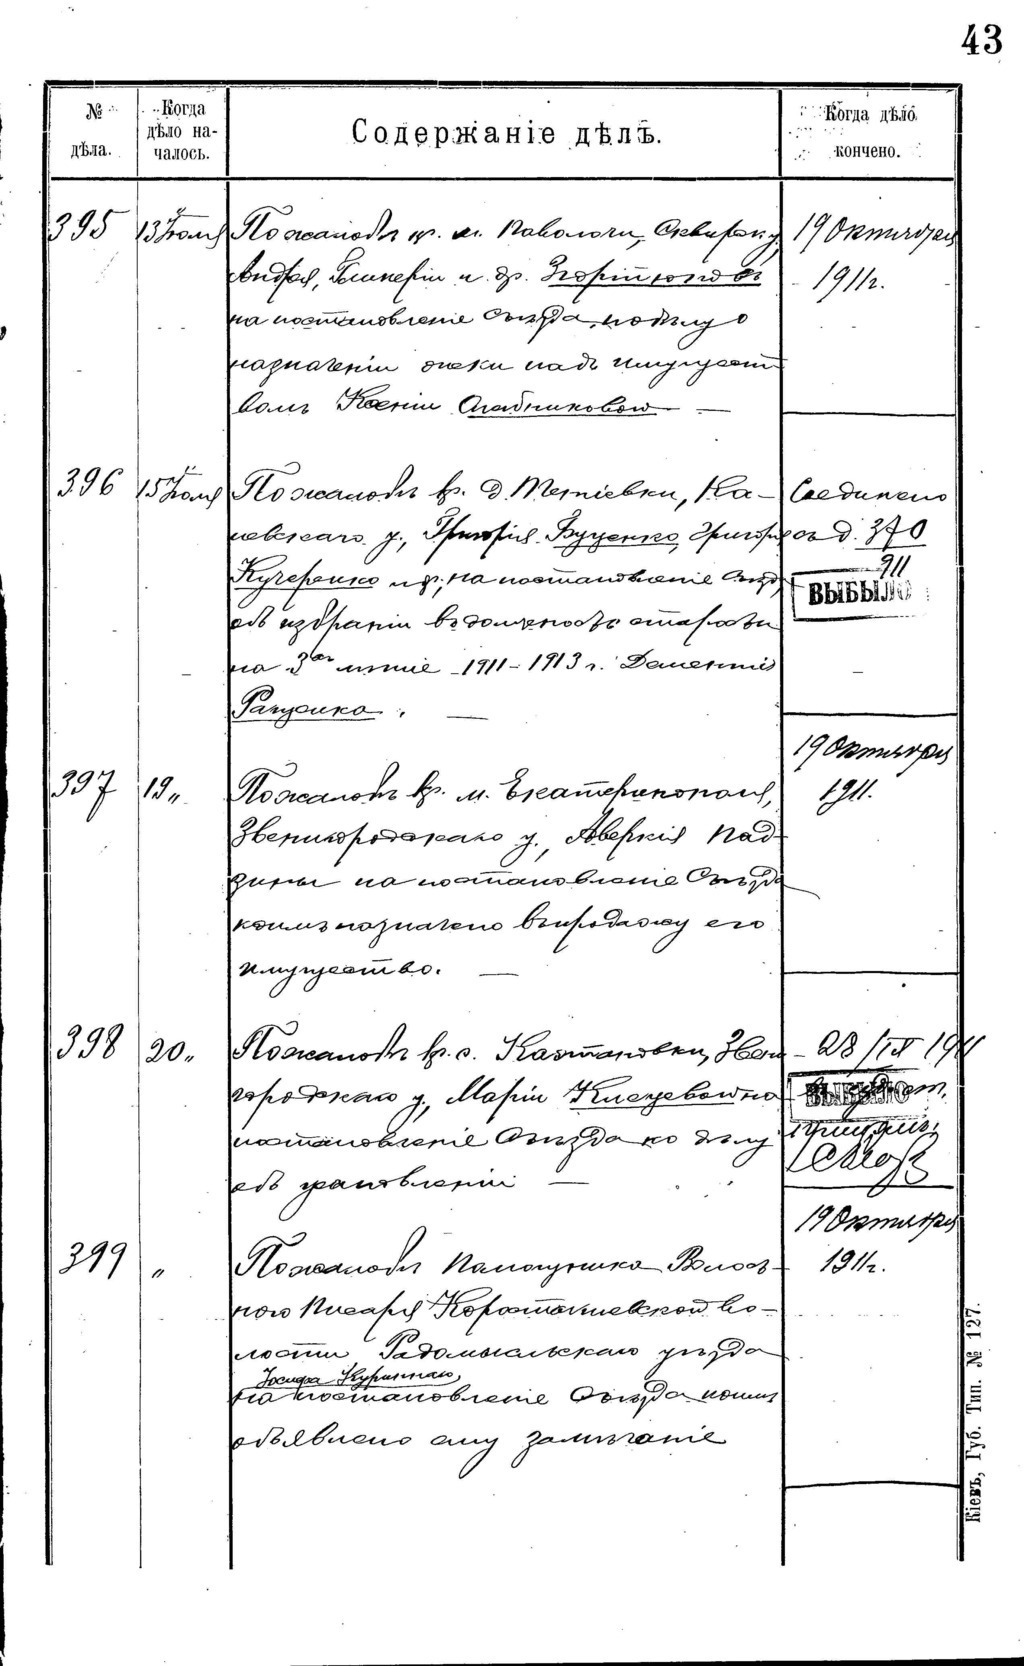 43
№ дѣла.
Когда дѣло началось.
Содержаніе дѣлъ.
Когда дѣло кончено.
395
13 Іюля
По жалобѣ кр. м. Паволочи, Сквирск. у.
Андрея, Гликеріи и др.
на постановленіе Съѣзда, по дѣлу о
назначеніи опеки надъ имущест
вомъ Ксеніи
19 Октября
1911г.
396
15 Іюля
По жалобѣ кр. д. Ка-
невскаго у., Григорія Буценко, Григорія
Кучеренко и др., на постановленіе Съѣзда
объ избраніи въ должность старосты
на 3ех лѣтіе 1911-1913 г. Дементія
Соединено
съ д. 370
911
ВЫБЫЛО
397
19 "
По жалобѣ кр. м. Екатеринополя,
Звенигородскаго у., Аверкія Над-
на постановленіе Съѣзда
коимъ назначено въ продажу его
имущество.
19 Октября
1911.
398
20 "
По жалобѣ кр. с. Звени
городскаго у., Маріи на
постановленіе Съѣзда по дѣлу
объ
28/IX 1911
ВЫБЫЛО
399
"
По жалобѣ Помощника Волост-
ного Писаря Коростышевской во-
лости Радомысльскаго уѣзда
Іосифа
на постановленіе Съѣзда коимъ
объявлено ему замѣчаніе
19 Октября
1911г.
Кіевъ, Губ. Тип. № 127.